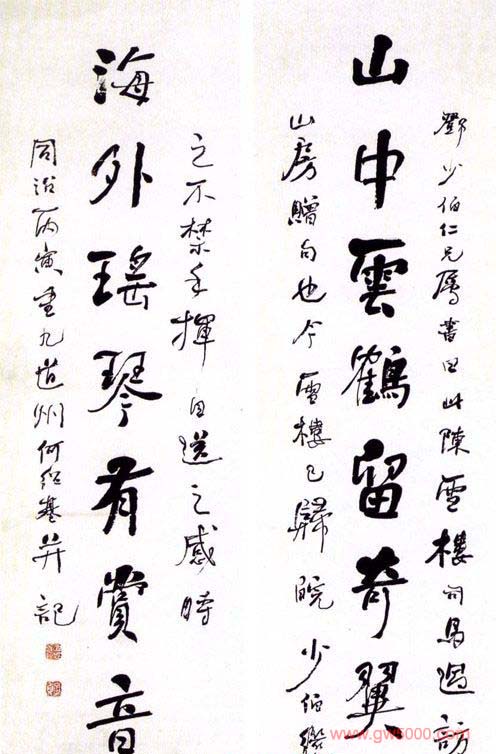 山中雲鶴留奇翼
鄧少伯仁兄屬書曰此陳雪樓司馬過訪
山房贈句也今雪樓已歸皖少伯
海外瑤琴有賞音
之不禁手揮目送之感時
同治丙寅重九道州何紹基并記
www.gw5000.com